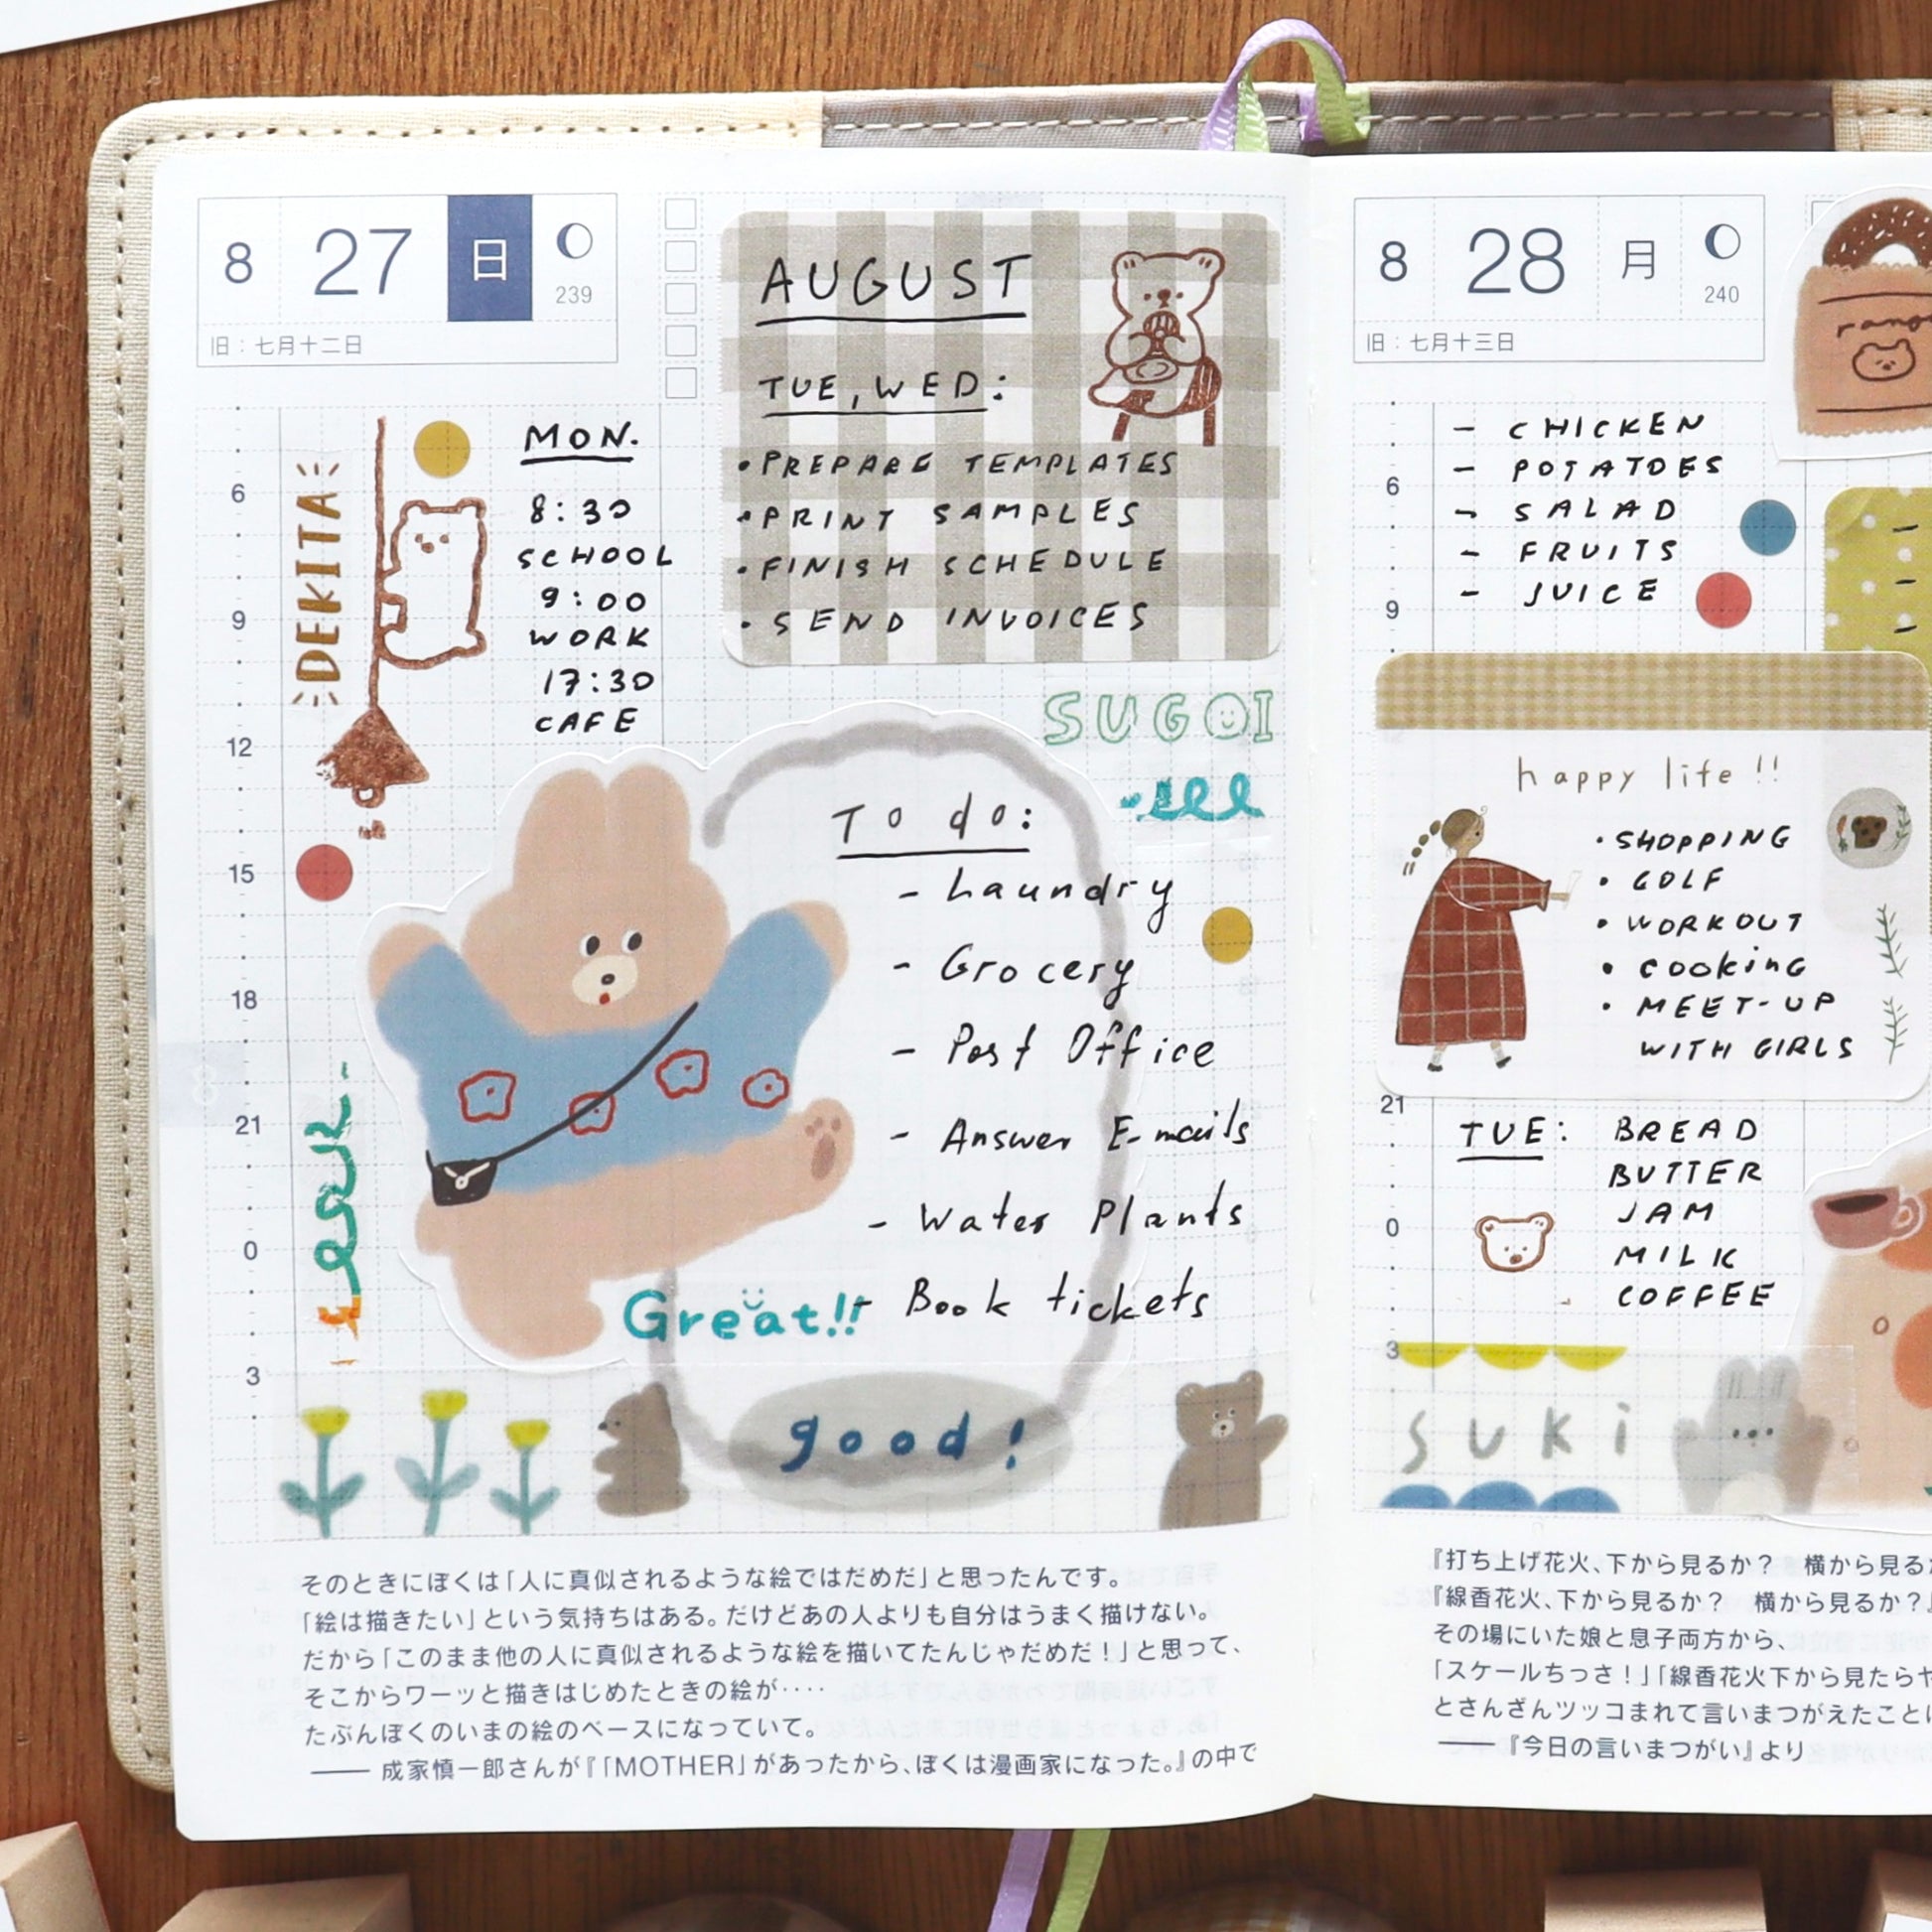 8 27 日
239
旧：七月十二日
AUGUST
TUE, WED:
•PREPARE TEMPLATES
•PRINT SAMPLES
•FINISH SCHEDULE
•SEND INVOICES
DEKITA
MON.
8:30
SCHOOL
9:00
WORK
17:30
CAFE
6
9
12
15
18
21
0
3
8
SUGOI
To do:
- Laundry
- Grocery
- Post Office
- Answer E-mails
- Water Plants
- Book tickets
Great!!
good!
そのときにぼくは「人に真似されるような絵ではだめだ」と思ったんです。
「絵は描きたい」という気持ちはある。だけどあの人よりも自分はうまく描けない。
だから「このまま他の人に真似されるような絵を描いてたんじゃだめだ！」と思って、
そこからワーッと描きはじめたときの絵が‥‥
たぶんぼくのいまの絵のベースになっていて。
── 成家慎一郎さんが『「MOTHER」があったから、ぼくは漫画家になった。』の中で
8 28 月
240
旧：七月十三日
- CHICKEN
- POTATOES
- SALAD
- FRUITS
- JUICE
6
9
happy life!!
•SHOPPING
•GOLF
•WORKOUT
•cookinG
•MEET-UP
WITH GIRLS
21
0
3
TUE: BREAD
BUTTER
JAM
MILK
COFFEE
SUKi
『打ち上げ花火、下から見るか？　横から見る
『線香花火、下から見るか？　横から見るか？』
その場にいた娘と息子両方から、
「スケールちっさ！」「線香花火下から見たらヤ
とさんざんツッコまれて言いまつがえたこと
── 『今日の言いまつがい』より